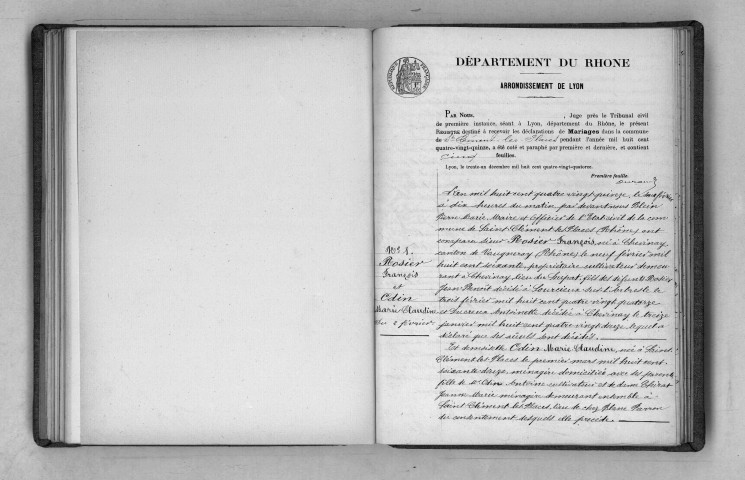 DÉPARTEMENT DU RHONE
ARRONDISSEMENT DE LYON
PAR NOUS, , Juge près le Tribunal civil
de première instance, séant à Lyon, département du Rhône, le présent
REGISTRE destiné à recevoir les déclarations de Mariages dans la commune
de St Clément les Places pendant l'année mil huit cent
quatre-vingt-quinze, a été coté et paraphé par première et dernière, et contient
cinq feuilles.
Lyon, le trente-un décembre mil huit cent quatre-vingt-quatorze.
Première feuille.
L'an mil huit cent quatre vingt quinze, le deux février
à dix heures du matin par devant nous Blein
Pierre Marie, Maire et Officier de l'Etat civil de la com
mune de Saint Clément les Places (Rhône) ont
comparu sieur Rosier François, né à Chevinay
canton de Vaugneray (Rhône) le neuf février mil
huit cent soixante, propriétaire cultivateur demeu
rant à Chevinay, lieu du fils des défunts Rosier
Jean Benoît décédé à Sourcieux sur l'Arbresle le
trois février mil huit cent quatre vingt quatorze
et Ducreux Antoinette décédée à Chevinay le treize
janvier mil huit cent quatre vingt douze lequel a
déclaré que ses aïeuls sont décédés.
Et demoiselle Odin Marie Claudine, née à Saint
Clément les Places le premier mars mil huit cent
soixante douze, ménagère domiciliée avec ses parents
fille de sr Odin Antoine cultivateur et de dame
Jeanne Marie ménagère demeurant ensemble à
Saint Clément les Places, lieu de chez Blanc
du consentement desquels elle procède
No 1.
Rosier
François
et
Odin
Marie Claudine
du 2 février